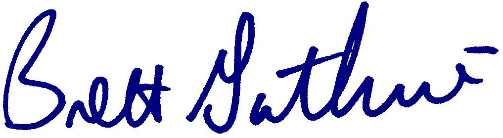 Brett Guthrie